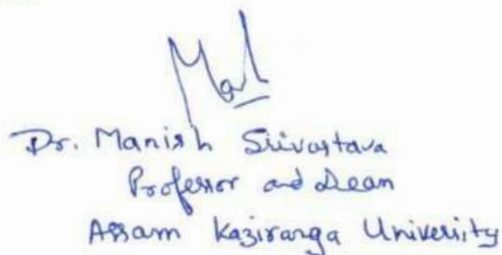 Dr. Manish Srivastava
Professor and Dean
Assam Kaziranga University